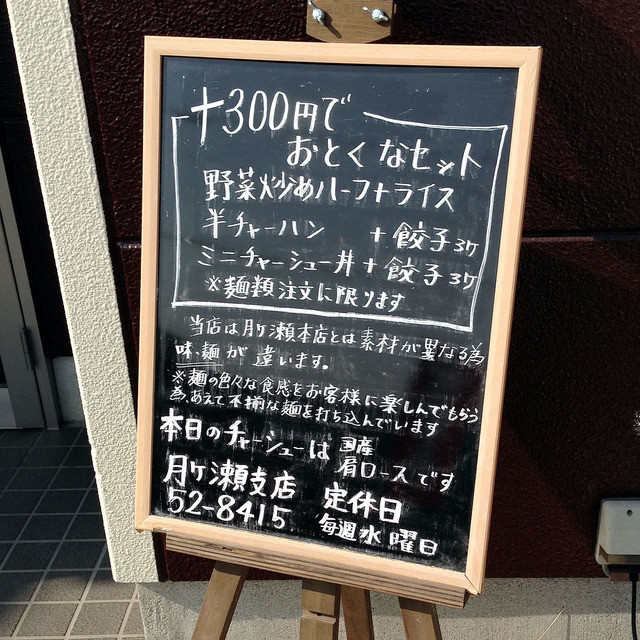 +300円で
おとくなセット
野菜炒めハーフ+ライス
半チャーハン +餃子3ヶ
ミニチャーシュー丼+餃子3ヶ
※麺類注文に限ります
当店は月ヶ瀬本店とは素材が異なる為
味、麺が違います。
※麺の色々な食感をお客様に楽しんでもらう
為、あえて不揃な麺を打ち込んでいます
本日のチャーシューは 国産
肩ロースです
月ヶ瀬支店 定休日
52-8415 毎週水曜日